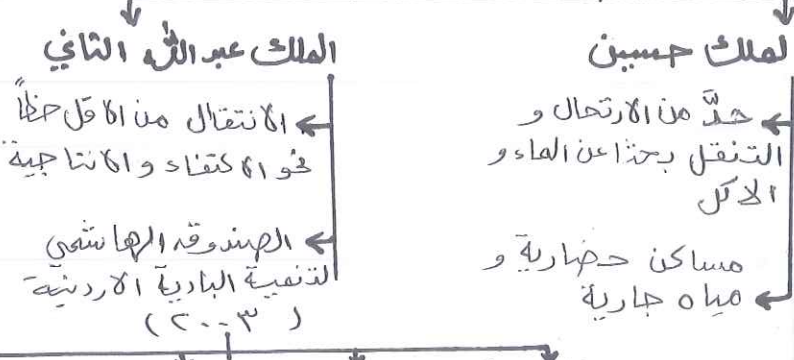 لملك حسين
حدَّ من الارتحال و
التنقل بحثا عن الماء و
الاكل
مساكن حضارية و
مياه جارية
الملك عبد الله الثاني
الانتقال من الاقل حظاً
نحو الاكتفاء و الانتاجية
الصندوق الهاشمي
لتنمية البادية الاردنية
(٢٠٠٣)